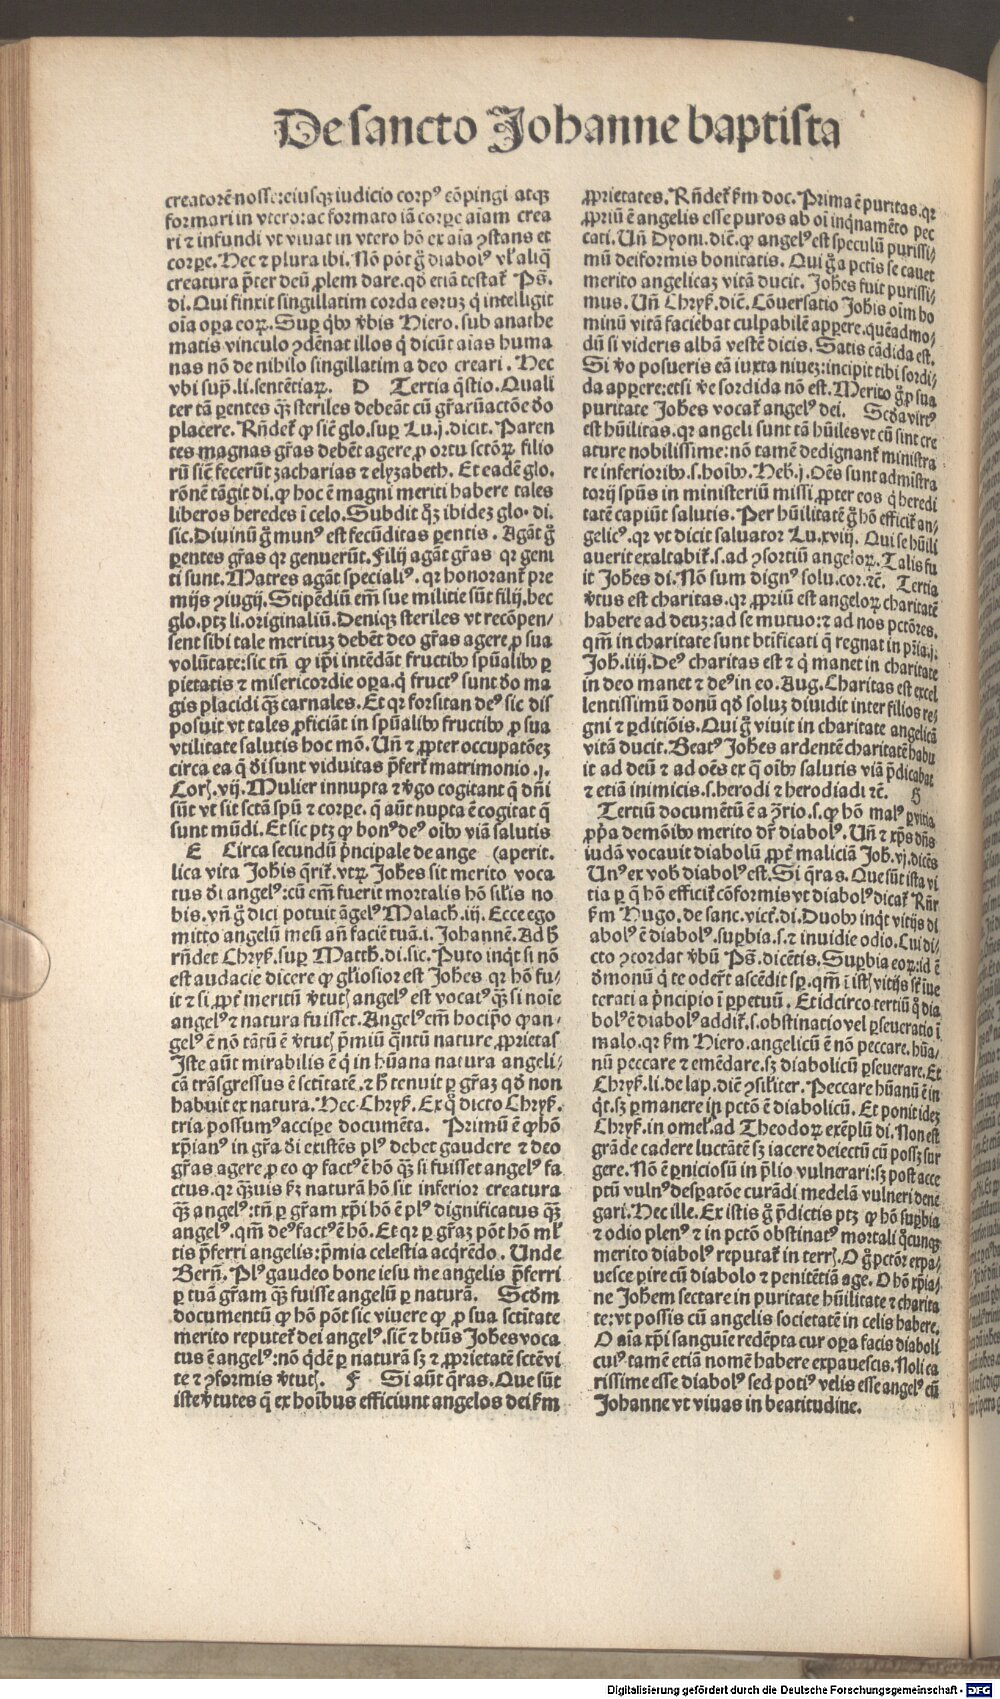 De sancto Johanne baptista
creatorē nosse: eiusqȝ iudicio corpꝰ cōpingi atqȝ
formari in vtero: ac formato iā corpe aīam crea
ri ⁊ infundi vt viuat in vtero hō ex aīa ꝯstans et
corꝑe. Hec ⁊ plura ibi. Nō pōt g̊ diabolꝰ vl̓ aliq̄
creatura p̄ter deū ꝓlem dare. qḋ etiā testat᷑ Ps̄.
di. Qui finxit singillatim corda eoruȝ q̇ intelligit
oīa oꝑa eoꝝ. Suꝑ qͥbꝰ v̓bis Hiero. sub anathe
matis vinculo ꝯdēnat illos q̇ dicūt aīas huma
nas nō de nihilo singillatim a deo creari. Hec
vbi sup̄. li. sentētiaꝝ. D Tertia q̄stio. Quali
ter tā ꝑentes qȝ steriles debeāt cū gr̄aꝝ actōe deo
placere. Rn̄det᷑ ꝙ sic̄ glo. suꝑ Lu. j. dicit. Paren
tes magnas gr̄as debēt agere ꝓ ortu sctōꝝ filio
rū sic̄ fecerūt zacharias ⁊ elyzabeth. Et eadē glo.
rōnē tāgit di. ꝙ hoc ē magni meriti habere tales
liberos heredes ī celo. Subdit qȝ ibideȝ glo. di.
sic. Diuinū g̊ munꝰ est fecūditas ꝑentis. Agāt g̊
ꝑentes gr̄as qr genuerūt. Filij agāt gr̄as qr geni
ti sunt. Matres agāt speciaꝉꝰ. qr honorant᷑ pre
mijs ꝯiugij. Stipēdiū em̄ sue militie sūt filij. hec
glo. ptȝ li. originaliū. Deniqȝ steriles vt recōpen⸗
sent sibi tale merituȝ debēt deo gr̄as agere ꝓ sua
volūtate: sic tn̄ ꝙ ip̄i intēdāt fructibꝰ spūalibꝰ ꝑ
pietatis ⁊ misericordie oꝑa. q̇ fructꝰ sunt deo ma
gis placidi qȝ carnales. Et qr forsitan deꝰ sic dis
posuit vt tales ꝓficiāt in spūalibꝰ fructibꝰ ꝓ sua
vtilitate salutis hoc mō. Un̄ ⁊ ꝓpter occupatōeȝ
circa ea q̄ dei sunt viduitas p̄fert᷑ matrimonio. j.
Corꝭ. vij. Mulier innupta ⁊ v̓go cogitant q̄ dn̄i
sūt vt sit sctā spū ⁊ corꝑe. q̄ aūt nupta ē cogitat q̄
sunt mūdi. Et sic ptȝ ꝙ bonꝰ deꝰ oībꝰ viā salutis
E Circa secundū p̄ncipale de ange (aperit.
lica vita Johīs q̄rit᷑. vtꝝ Johēs sit merito voca
tus dei angelꝰ: cū em̄ fuerit mortalis hō sil̓is no
bis. vn̄ g̊ dici potuit āgelꝰ Malach. iij. Ecce ego
mitto angelū meū an̄ faciē tuā. i. Johannē. Ad h̄
rn̄det Chryſ. suꝑ Matth. di. sic. Puto inqͥt si nō
est audacie dicere ꝙ gl̓iosior est Johēs. qr hō fu⸗
it ⁊ si ꝓpt̓ meritū v̓tutꝭ angelꝰ est vocatꝰ qȝ si noīe
angelꝰ ⁊ natura fuisset. Angelꝰ em̄ hoc ip̄o ꝙ an⸗
gelꝰ ē nō tātū ē v̓tutꝭ p̄miū q̄ntū nature ꝓprietas
Iste aūt mirabilis ē q̇ in hūana natura angeli⸗
cā trāsgressus ē sctitatē. ⁊ h̄ tenuit ꝑ gr̄aȝ qḋ non
habuit ex natura. Hec Chryſ. Ex q̊ dicto Chryſ.
tria possumꝰ accipe documēta. Primū ē ꝙ hō
xp̄ianꝰ in gr̄a dei existēs plꝰ debet gaudere ⁊ deo
gr̄as agere ꝓ eo ꝙ factꝰ ē hō qȝ si fuisset angelꝰ fa
ctus. qr qȝuis ẜm naturā hō sit inferior creatura
qȝ angelꝰ: tn̄ ꝑ gr̄am xp̄i hō ē plꝰ dignificatus qȝ
angelꝰ. qm̄ deꝰ factꝰ ē hō. Et qr ꝑ gr̄aȝ pōt hō ml̓
tis p̄ferri angelis: p̄mia celestia acq̄rēdo. Unde
Bern̄. Plꝰ gaudeo bone iesu me angelis p̄ferri
ꝑ tuā gr̄am qȝ fuisse angelū ꝑ naturā. Scḋm
documentū ꝙ hō pōt sic viuere ꝙ ꝓ sua sctitate
merito reputet᷑ dei angelꝰ. sic̄ ⁊ bt̄us Johēs voca
tus ē angelꝰ: nō q̇dē ꝑ naturā sȝ ⁊ ꝓprietatē sctē vi
te ⁊ ꝯformis v̓tutꝭ. F Si aūt q̄ras. Que sūt
iste v̓tutes q̄ ex hoībus efficiunt angelos dei ẜm
ꝓprietates. Rn̄det᷑ ẜm doc. Prima ē puritas. qr
ꝓpriū ē angelis esse puros ab oī inqͥnamēto pec
cati. Un̄ Dyoni. dic̄. ꝙ angelꝰ est speculū purissi⸗
mū deiformis bonitatis. Qui g̊ a pctīs se cauet
merito angelicaȝ vitā ducit. Johēs fuit purissi⸗
mus. Un̄ Chryſ. dic̄. Cōuersatio Johīs oīm ho
minū vitā faciebat culpabilē apꝑere. quēadmo⸗
dū si videris albā vestē dicis. Satis cādida est.
Si v̓o posueris eā iuxta niueȝ: incipit tibi sordi⸗
da apꝑere: etsi v̓e sordida nō est. Merito g̊ ꝓ sua
puritate Johēs vocat᷑ angelꝰ dei. Scḋa virtꝰ
est hūilitas. qr angeli sunt tā hūiles vt cū sint cre
ature nobilissime: nō tamē dedignant᷑ ministra
re inferioribꝰ. s. hoībꝰ. Heb. j. Oēs sunt admīstra
torij spūs in ministeriū missi ꝓpter eos q̇ heredi
tatē capiūt salutis. Per hūilitatē g̊ hō efficit᷑ an⸗
gelicꝰ. qr vt dicit saluator Lu. xviij. Qui se hūili
auerit exaltabit᷑. s. ad ꝯsortiū angeloꝝ. Talis fu
it Johēs di. Nō sum dignꝰ solu. cor. ⁊c̄. Tertia
v̓tus est charitas. qr ꝓpriū est angeloꝝ charitatē
habere ad deuȝ: ad se mutuo: ⁊ ad nos pctōres.
qm̄ in charitate sunt btīficati q̇ regnat in pr̄ia. j.
Joh. iiij. Deꝰ charitas est ⁊ q̇ manet in charitate
in deo manet ⁊ deꝰ in eo. Aug. Charitas est excel
lentissimū donū qḋ soluȝ diuidit inter filios re⸗
gni ⁊ ꝑditiōis. Qui g̊ viuit in charitate angelicā
vitā ducit. Beatꝰ Johēs ardentē charitatē habu
it ad deū ⁊ ad oēs ex q̄ oībꝰ salutis viā p̄dicabat
⁊ etiā inimicis. s. herodi ⁊ herodiadi ⁊c̄. G
Tertiū documētū ē a ꝯ̄rio. s. ꝙ hō malꝰ ꝑ vitia
ꝓpa demōibꝰ merito dr̄ diabolꝰ. Un̄ ⁊ xp̄s dn̄s
iudā vocauit diabolū ꝓpt̓ maliciā Joh. vj. dicēs
Unꝰ ex vob̄ diabolꝰ est. Si q̄ras. Que sūt ista vi
tia ꝑ q̄ hō efficit᷑ cōformis vt diabolꝰ dicat᷑ Rn̄r
ẜm Hugo. de sanc. vict̓. di. Duobꝰ inqͥt vitijs di
abolꝰ ē diabolꝰ. suꝑbia. s. ⁊ inuidie odio. Cui di⸗
cto ꝯcordat v̓bū Ps̄. dicētis. Suꝑbia eoꝝ: id ē
demonū q̇ te oder̄t ascēdit sꝑ. qm̄ ī istꝭ vitijs sūt iue
terati a p̄ncipio ī ꝑpetuū. Et idcirco tertiū q̊ dia
bolꝰ ē diabolꝰ addit᷑. s. obstinatio vel ꝑseueratio ī
malo. qr ẜm Hiero. angelicū ē nō peccare. hūa⸗
nū peccare ⁊ emēdare. sȝ diabolicū ꝑseuerare. Et
Chryſ. li. de lap. dic̄ ꝯsil̓iter. Peccare hūanū ē in
qͥt. sȝ ꝑmanere in pctō ē diabolicū. Et ponit ideȝ
Chryſ. in omel̓. ad Theodoꝝ exēplū di. Non est
grāde cadere luctātē sȝ iacere deiectū cū possȝ sur
gere. Nō ē ꝑniciosū in p̄lio vulnerari: sȝ post acce
ptū vulnꝰ desꝑatōe curādi medelā vulneri dene
gari. Hec ille. Ex istis g̊ p̄dictis ptȝ ꝙ hō suꝑbia
⁊ odio plenꝰ ⁊ in pctō obstinatꝰ mortali q̇cunqȝ
merito diabolꝰ reputat᷑ in terrꝭ. O g̊ pctōr expa⸗
uesce ꝑire cū diabolo ⁊ penitētiā age. O hō xp̄ia⸗
ne Johēm sectare in puritate hūilitate ⁊ charita
te: vt possis cū angelis societatē in celis habere.
O aīa xp̄i sanguīe redēpta cur oꝑa facis diaboli
cuiꝰ tamē etiā nomē habere expauescis. Noli ca
rissime esse diabolꝰ sed potiꝰ velis esse angelꝰ cū
Johanne vt viuas in beatitudine.
Digitalisierung gefördert durch die Deutsche Forschungsgemeinschaft - DFG